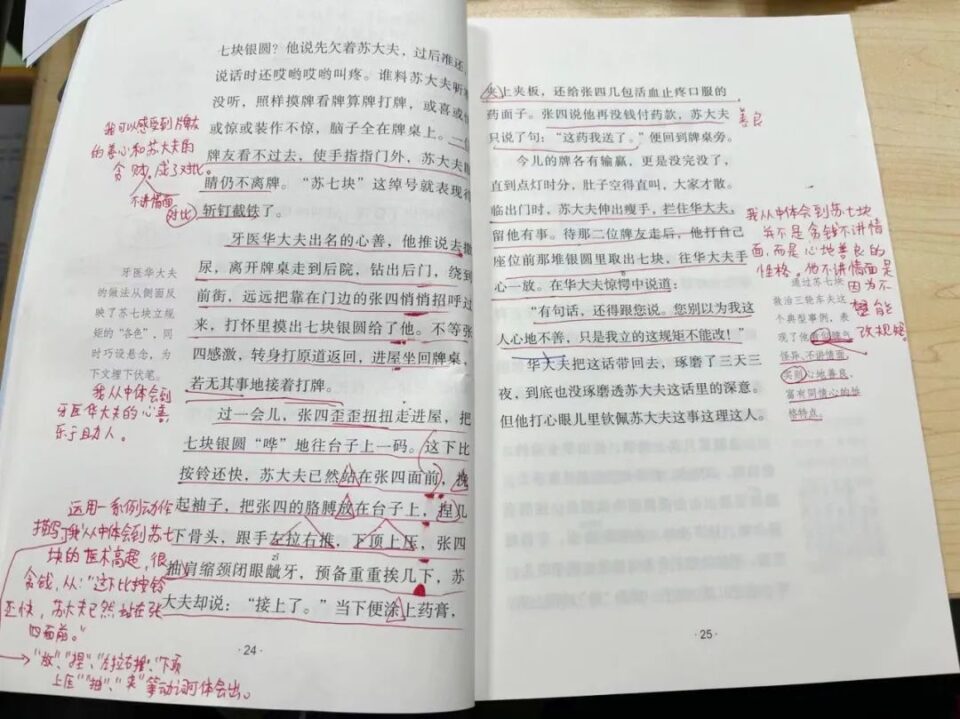 七块银圆?他说先欠着苏大夫,过后准还,
说话时还哎哟哎哟叫疼。谁料苏大夫听
没听,照样摸牌看牌算牌打牌,或喜或
或惊或装作不惊,脑子全在牌桌上。一位
牌友看不过去,使手指指门外,苏大夫眼
睛仍不离牌。“苏七块”这绰号就表现得
斩钉截铁了。
牙医华大夫出名的心善,他推说去撒
尿,离开牌桌走到后院,钻出后门,绕到
前街,远远把靠在门边的张四悄悄招呼过
来,打怀里摸出七块银圆给了他。不等张
四感激,转身打原道返回,进屋坐回牌桌,
若无其事地接着打牌。
过一会儿,张四歪歪扭扭走进屋,把
七块银圆“哗”地往台子上一码。这下比
按铃还快,苏大夫已然站在张四面前,挽
起袖子,把张四的胳膊放在台子上,捏几
下骨头,跟手左拉右推,下顶上压,张四
抽肩缩颈闭眼龇牙,预备重重挨几下,苏
zī
大夫却说:“接上了。”当下便涂上药膏,
·24·
我可以感受到牌友
的善心和苏大夫的
贪财,成了对比。
不讲情面
对比
牙医华大夫
的做法从侧面反
映了苏七块立规
矩的“各色”,同
时巧设悬念,为
下文埋下伏笔。
我从中体会到
牙医华大夫的心善,
乐于助人。
运用一系例动作
描写了我从中体会到苏七
块的医术高超,很
贪钱,从:“这下比按铃
还快,苏大夫已然站在张
四面前。”
→“放”、“捏”、“左拉右推”、“下顶
上压”“抽”、“夹”等动词可体会出。
夹上夹板,还给张四几包活血止疼口服的
药面子。张四说他再没钱付药款,苏大夫
只说了句:“这药我送了。”便回到牌桌旁。
善良
今儿的牌各有输赢,更是没完没了,
直到点灯时分,肚子空得直叫,大家才散。
临出门时,苏大夫伸出瘦手,拦住华大夫,
留他有事。待那二位牌友走后,他打自己
座位前那堆银圆里取出七块,往华大夫手
心一放。在华大夫惊愕中说道:
“有句话,还得跟您说。您别以为我这
人心地不善,只是我立的这规矩不能改!”
华大夫把这话带回去,琢磨了三天三
夜,到底也没琢磨透苏大夫这话里的深意。
但他打心眼儿里钦佩苏大夫这事这理这人。
·25·
我从中体会到苏七块
并不是贪钱不讲情
面,而是心地善良的
性格。他不讲情面是
因为不
想能
改规矩。
通过苏七块
救治三轮车夫这
个典型事例,表
现了他看似脾气
怪异、不讲情面,
实则心地善良、
富有同情心的性
格特点。